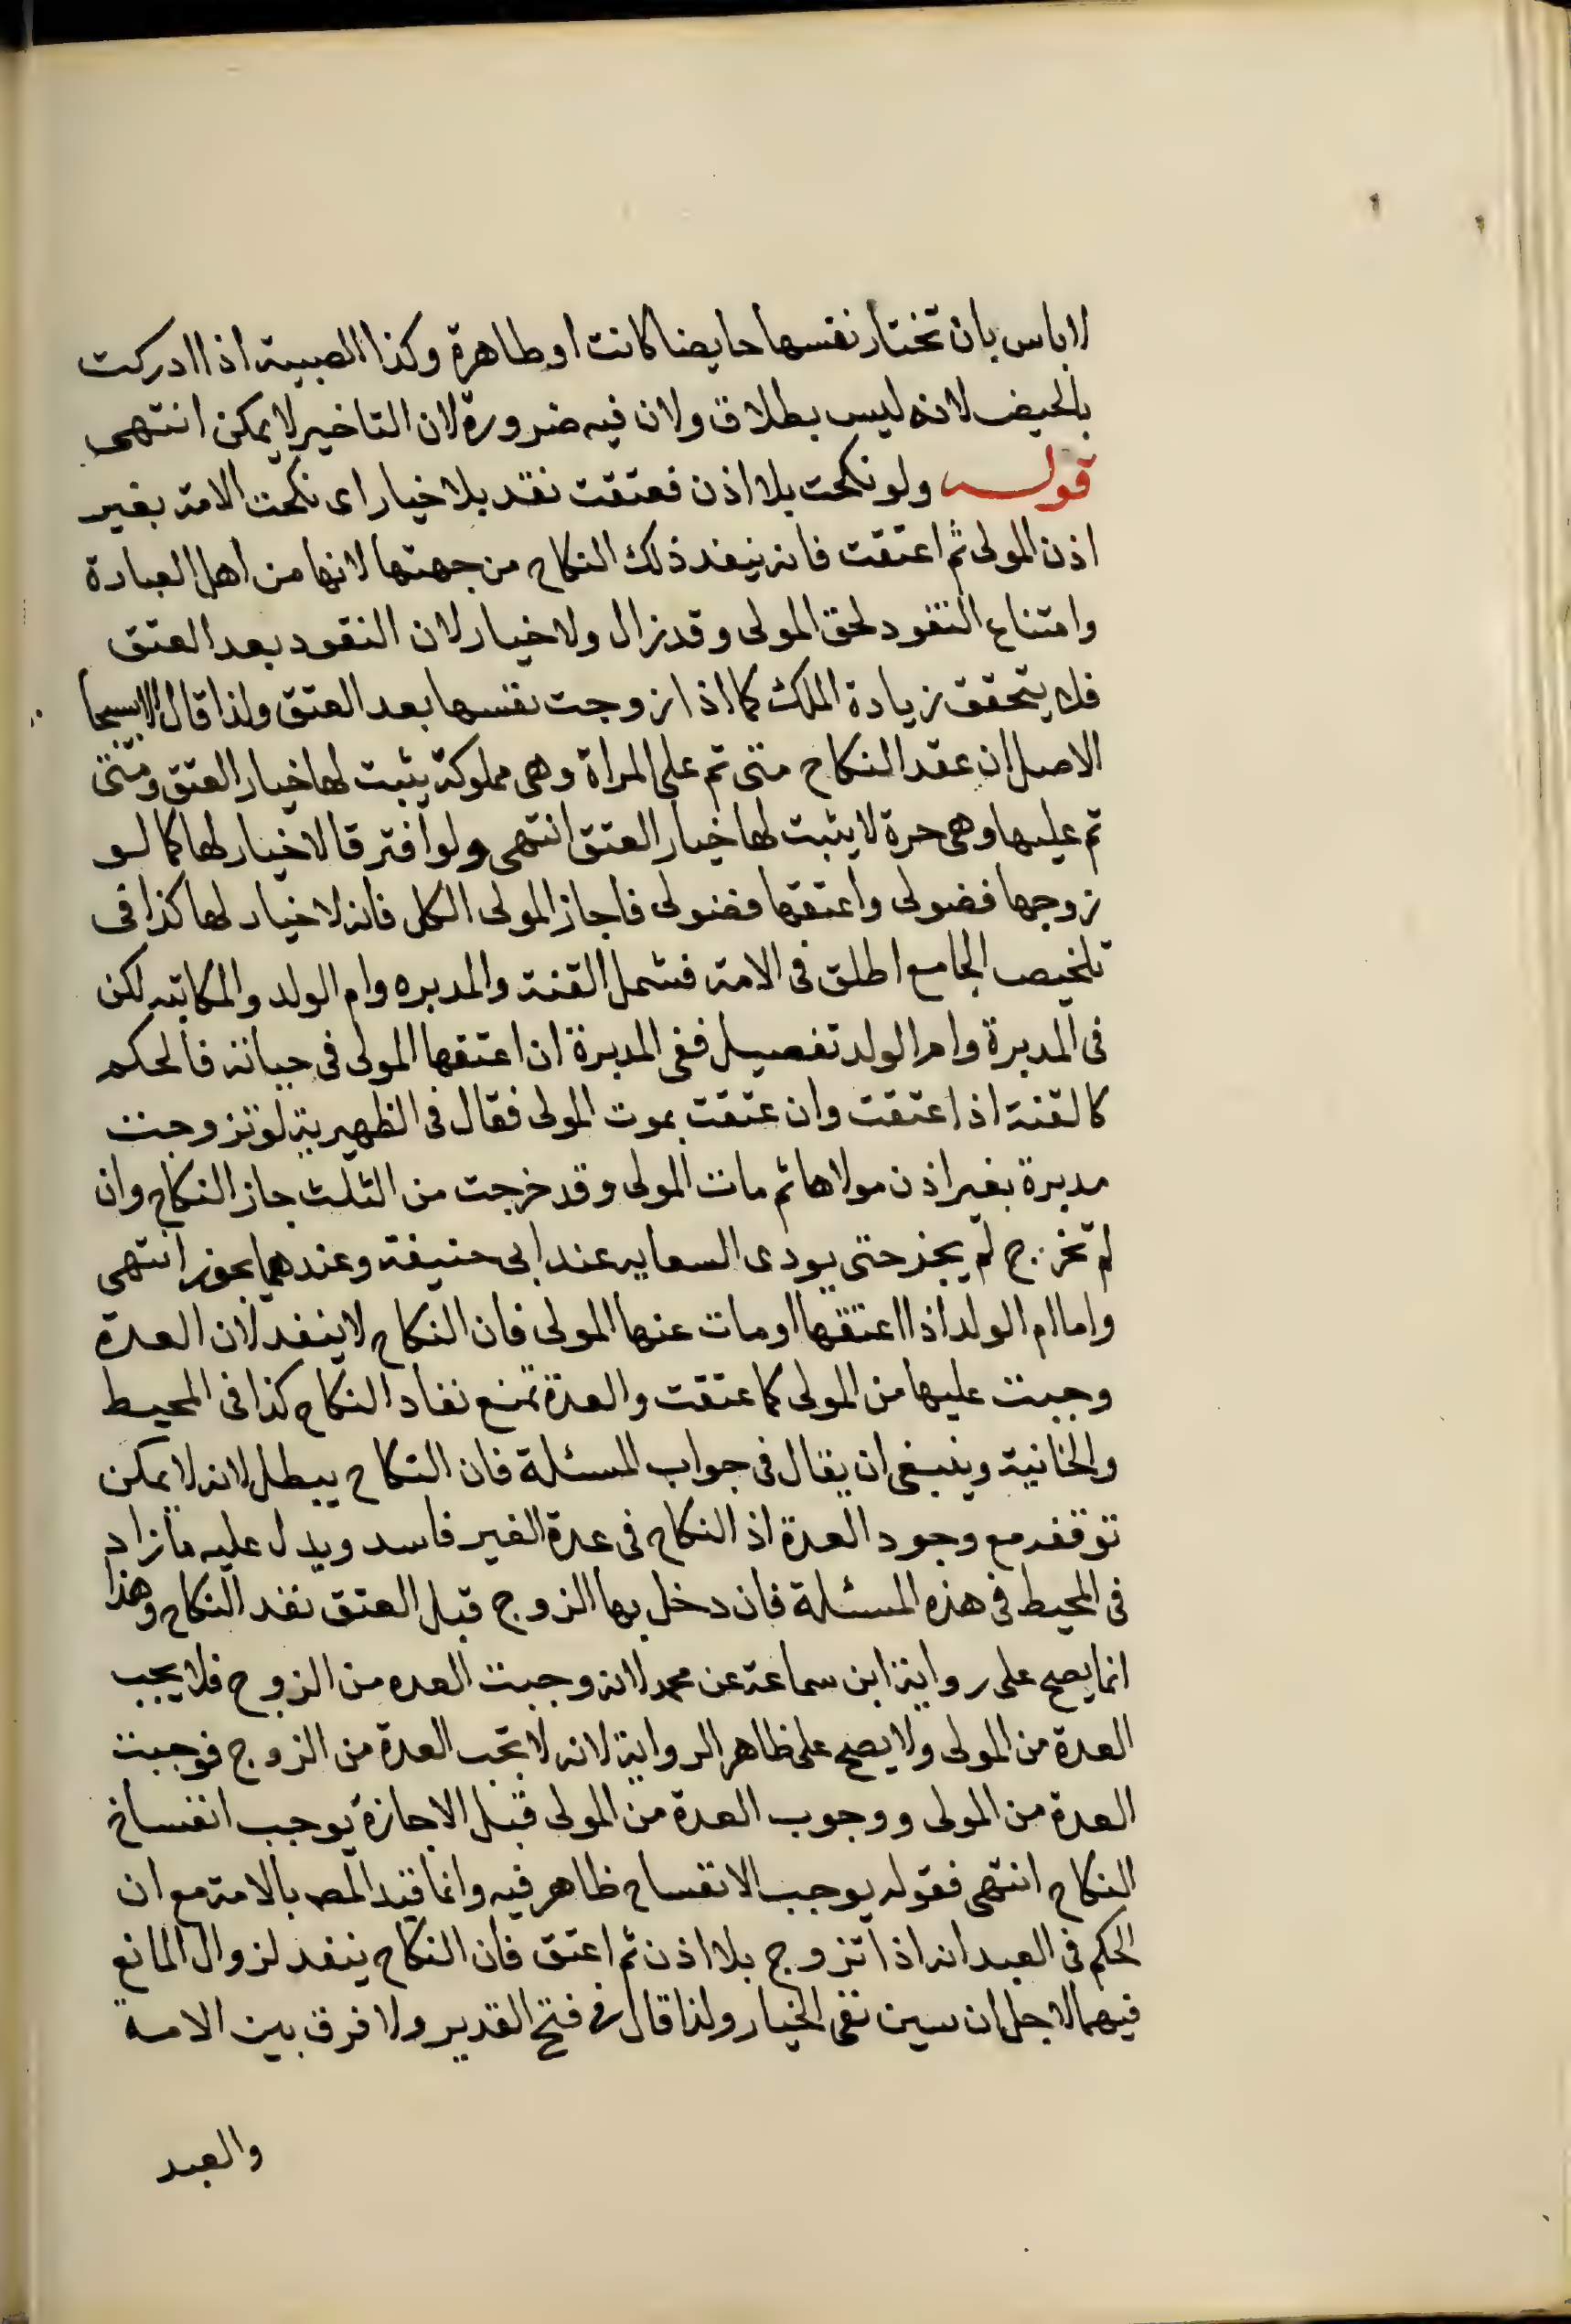 لاباس بان تختار نفسها حايضا كانت او طاهرة وكذا الصبية اذا ادركت
بالحيض لانه ليس بطلاق ولان فيه ضرورة لان التاخير لا يمكن انتهى
قوله ولو نكحت بلا اذن فعتقت نفد بلا خيار اى نكحت الامة بغير
اذن المولى ثم اعتقت فانه ينفد ذلك النكاح من جهتها لانها من اهل العبارة
وامتناع النفود لحق المولى وقد زال ولا خيار لان النفود بعد العتق
فلا يتحقق زيادة الملك كما اذا زوجت نفسها بعد العتق ولذا قال الاسبيجا
الاصل ان عقد النكاح متى تم على المراة وهى مملوكة يثبت لها خيار العتق ومتى
تم عليها وهى حرة لا يثبت لها خيار العتق انتهى ولو افترقا لا خيار لها كما لو
زوجها فضولى واعتقها فضولى فاجاز المولى الكل فانه لا خيار لها كذا فى
تلخيص الجامع اطلق فى الامة فشمل القنة والمدبره وام الولد والمكاتبه لكن
فى المدبرة وام الولد تفصيل ففى المدبرة ان اعتقها المولى فى حياته فالحكم
كالقنة اذا عتقت وان عتقت بموت المولى فقال فى الظهيرية لو تزوجت
مدبرة بغير اذن مولاها ثم مات المولى وقد خرجت من الثلث جاز النكاح وان
لم تخرج لم يجز حتى يودى السعايه عند ابى حنيفة وعندهما يجوز انتهى
واما ام الولد اذا اعتقها او مات عنها المولى فان النكاح لا ينفد لان العدة
وجبت عليها من المولى كما عتقت والعدة تمنع نفاد النكاح كذا فى المحيط
والخانية وينبغى ان يقال فى جواب المسئلة فان النكاح يبطل لانه لا يمكن
توقفه مع وجود العدة اذ النكاح فى عدة الغير فاسد ويدل عليه ما زاد
فى المحيط فى هذه المسئلة فان دخل بها الزوج قبل العتق نفد النكاح وهذا
انما يصح على رواية ابن سماعة عن محمد لانه وجبت العده من الزوج فلا يجب
العدة من المولى ولا يصح على ظاهر الرواية لانه لا تجب العدة من الزوج فوجبت
العدة من المولى ووجوب العدة من المولى قبل الاجازة يوجب انفساخ
النكاح انتهى فقوله يوجب الانفساخ ظاهر فيه وانما قيد المص بالامة مع ان
الحكم فى العبد انه اذا تزوج بلا اذن ثم اعتق فان النكاح ينفد لزوال المانع
فيهما لاجل ان يبين نفى الخيار ولذا قال فى فتح القدير ولا فرق بين الامة
والعبد